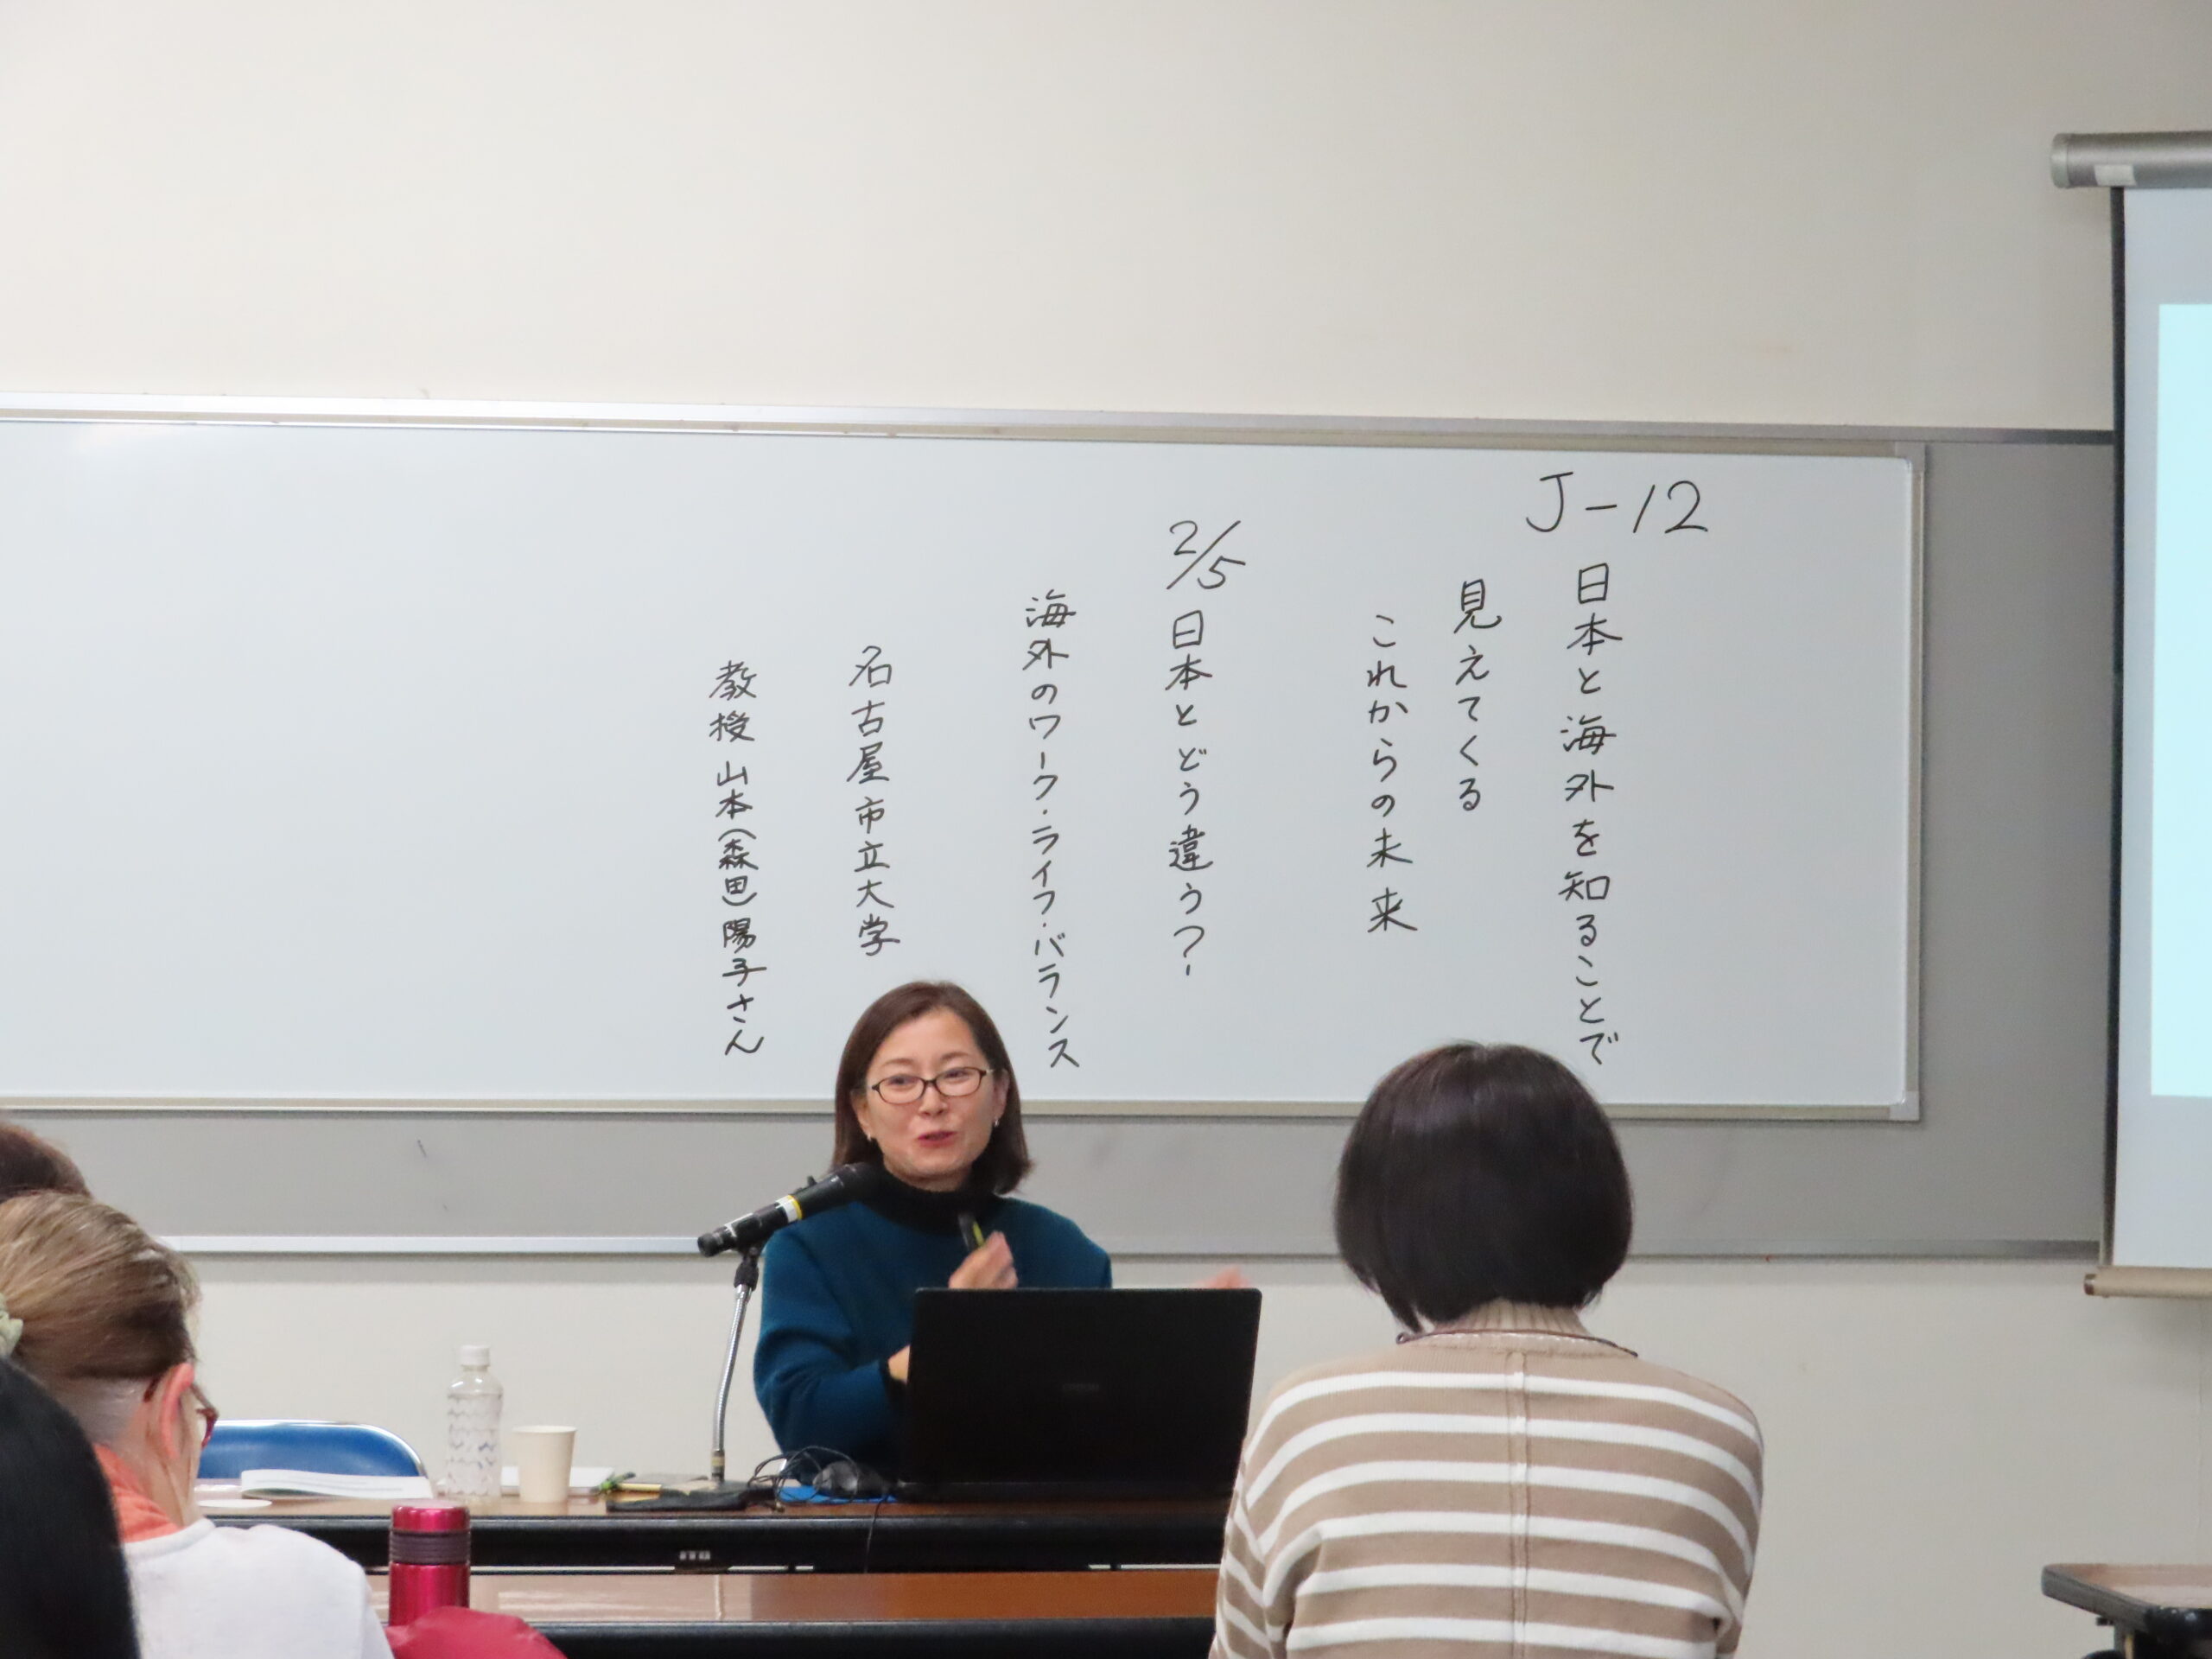 J-12
日本と海外を知ることで
見えてくる
これからの未来
2/5 日本とどう違う?
海外のワーク・ライフ・バランス
名古屋市立大学
教授 山本(森田)陽子さん